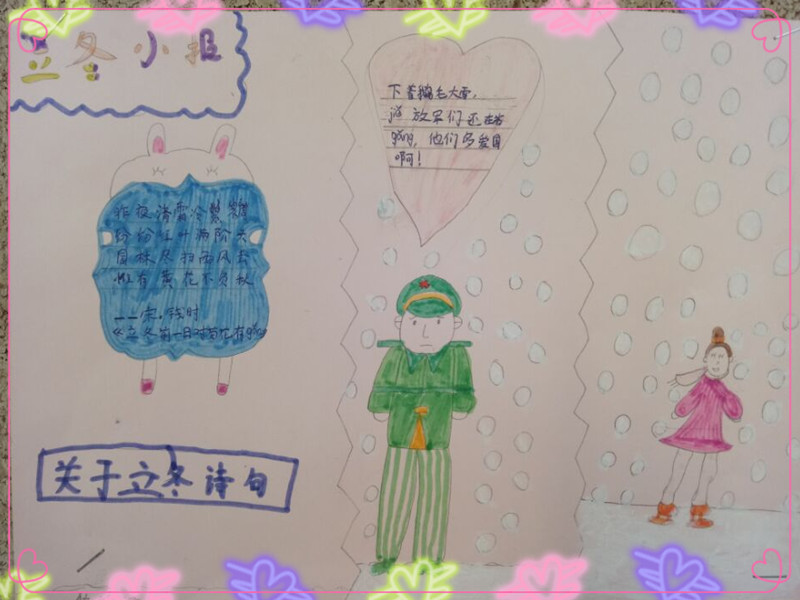 立冬小报
下着鹅毛大雪,
解放军们还在站
岗,他们多爱国
啊!
昨夜清霜冷絮裯
纷纷红叶满阶头
园林尽扫西风去
惟有黄花不负秋
——宋.钱时
《立冬前一日霜对菊有感
关于立冬诗句